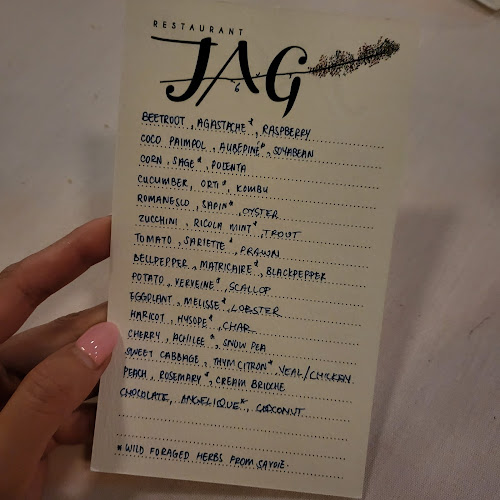 RESTAURANT
JAG
BEETROOT, AGASTACHE*, RASPBERRY
COCO PAIMPOL, AUBÉPINE*, SOYABEAN
CORN, SAGE*, POLENTA
CUCUMBER, ORTI*, KOMBU
ROMANESCO, SAPIN*, OYSTER
ZUCCHINI, RICOLA MINT*, TROUT
TOMATO, SARIETTE*, PRAWN
BELLPEPPER, MATRICAIRE*, BLACKPEPPER
POTATO, VERVEINE*, SCALLOP
EGGPLANT, MELISSE*, LOBSTER
HARICOT, HYSOPE*, CHAR
CHERRY, ACHILEE*, SNOW PEA
SWEET CABBAGE, THYM CITRON* VEAL/CHICKEN
PEACH, ROSEMARY*, CREAM BRIOCHE
CHOCOLATE, ANGELIQUE*, COCONUT
* WILD FORAGED HERBS FROM SAVOIE.